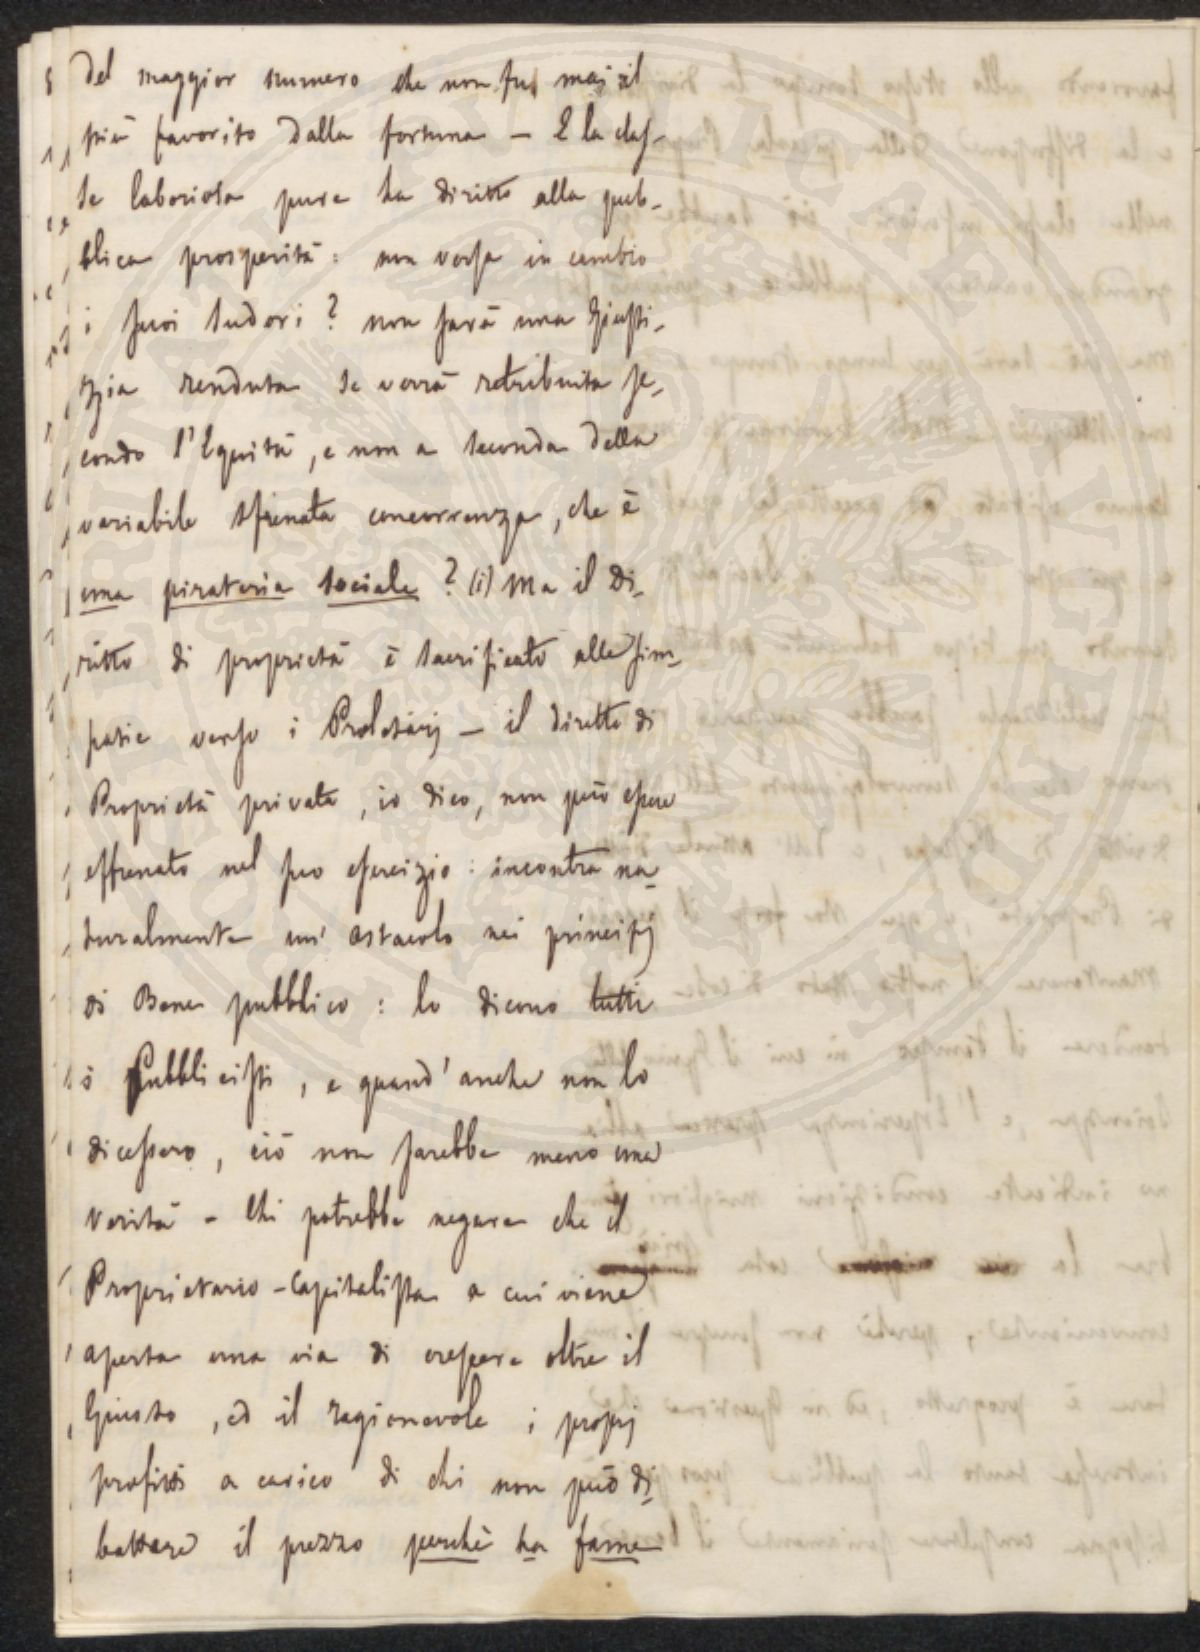 del maggior numero che non fu mai il
più favorito dalla fortuna – E la clas-
se laboriosa pure ha diritto alla pub-
blica prosperità: non versa in cambio
i suoi sudori? non sarà una Giusti-
zia renduta se verrà retribuita se-
condo l'Equità, e non a seconda della
variabile sfrenata concorrenza, che è
una pirateria sociale? (i) Ma il Di-
ritto di proprietà è sacrificato alle sim-
patie verso i Proletárj – il diritto di
Proprietà privata, io dico, non può essere
effrenato nel suo esercizio: incontra na-
turalmente un' ostacolo nei principj
di Bene pubblico: lo dicono tutti
i Pubblicisti, e quand' anche non lo
dicessero, ciò non sarebbe meno una
verità – Chi potrebbe negare che il
Proprietario-Capitalista a cui viene
aperta una via di crescere oltre il
Giusto, ed il ragionevole i proprj
profitti a carico di chi non può di-
battere il prezzo perchè ha fame